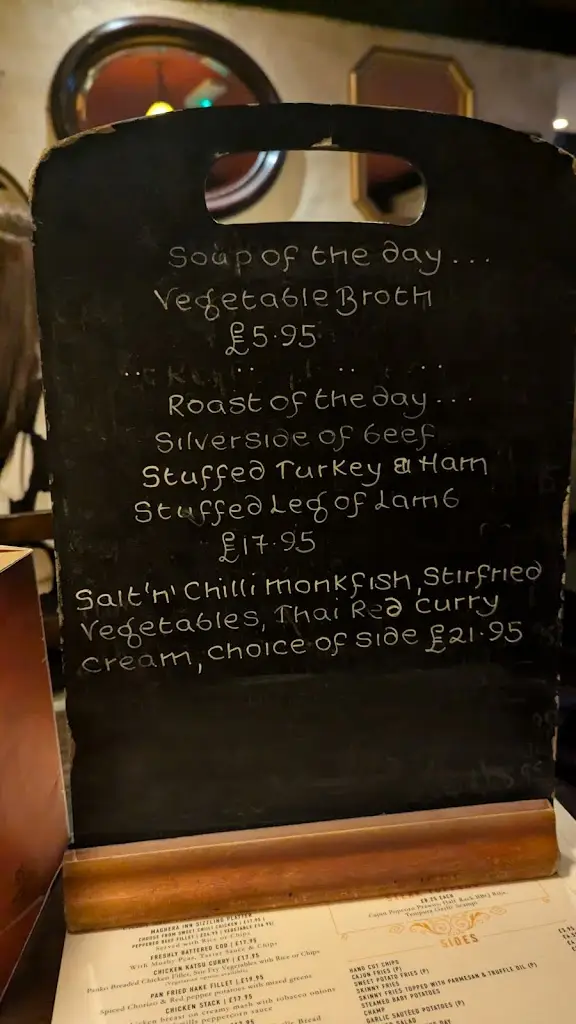 Soup of the day...
Vegetable Broth
£5.95
Roast of the day...
Silverside of beef
Stuffed Turkey & Ham
Stuffed Leg of Lamb
£17.95
Salt'n'Chilli Monkfish, Stirfried
Vegetables, Thai Red Curry
Cream, choice of side £21.95
MAGHERA INN SIZZLING PLATTER
CHOOSE FROM SWEET CHILLI CHICKEN | £17.95 |
Served with Rice or Chips
FRESHLY BATTERED COD | £17.95
With Mushy Peas, Tartar Sauce & Chips
CHICKEN KATSU CURRY | £17.95
Panko Breaded Chicken Fillet, Stir Fry Vegetables with Rice or Chips
PAN FRIED HAKE FILLET | £19.95
Spiced Chorizo & Red pepper potatoes with mixed greens
CHICKEN STACK | £17.95
chicken breast on creamy mash with tobacco onions
peppercorn sauce
SIDES
HAND CUT CHIPS
CAJUN FRIES (P)
SWEET POTATO FRIES (P)
SKINNY FRIES
SKINNY FRIES TOPPED WITH PARMESAN & TRUFFLE OIL (P)
STEAMED BABY POTATOES
CHAMP
GARLIC SAUTÉED POTATOES (P)